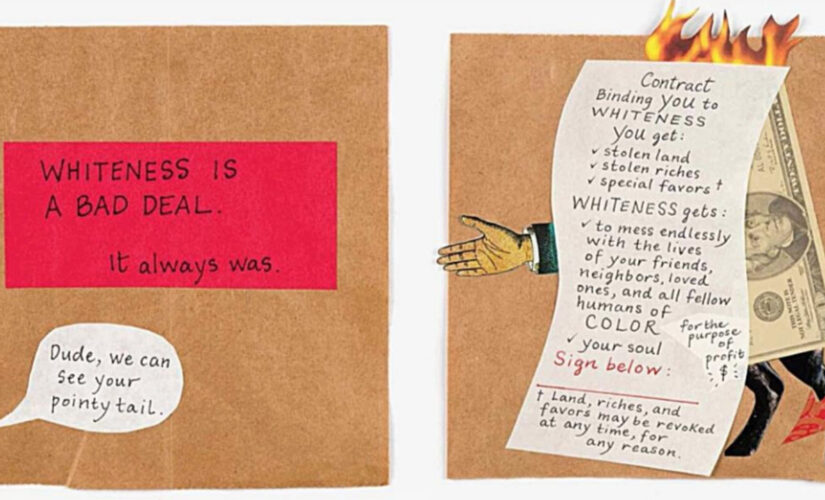 WHITENESS IS
A BAD DEAL.
It always was.
Dude, we can
see your
pointy tail.
Contract
Binding you to
WHITENESS
You get:
✓ stolen land
✓ stolen riches
✓ special favors †
WHITENESS gets:
✓ to mess endlessly
with the lives
of your friends,
neighbors, loved
ones, and all fellow
humans of
COLOR
✓ your soul
Sign below:
for the
purpose
of
profit
$
† Land, riches, and
favors may be revoked
at any time, for
any reason.
THIS NOTE IS
NOT LEGAL TENDER